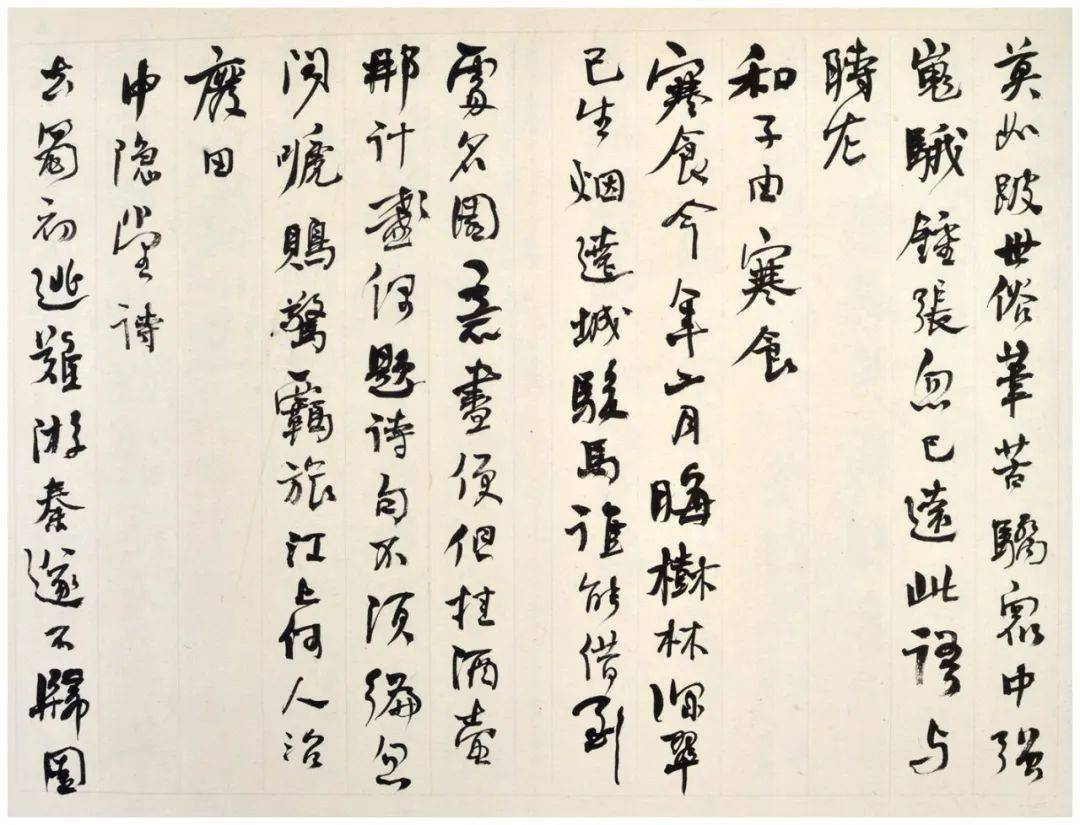 莫如跛世俗筆苦驕眾中強
嵬騀鍾張忽已遠此語与
時左
和子由寒食
寒食今年二月晦樹林深翠
已生烟遶城駿馬誰能借到
處名園意盡便但挂酒壺
那計盞偶題詩句不須編忽
聞嗁鵙驚羈旅江上何人治
廢田
中隱堂詩
去蜀初逃難游秦遂不歸園